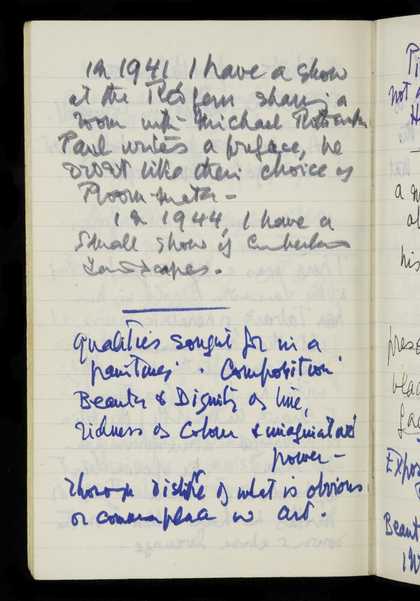 in 1941 I have a show
at the Redfern sharing a
room with Michael Rothenstein
Paul writes a preface, he
didnt like their choice of
Room-mate -
in 1944, I have a
small show of Cumberland
Landscapes.
qualities sought for in a
'paintings' . Composition
Beauty & Dignity of line,
richness of Colour & imaginative
power -
Thorough Dislike of what is obvious
or commonplace in art.
Pi
not
H
a
his
Expos
Beaut